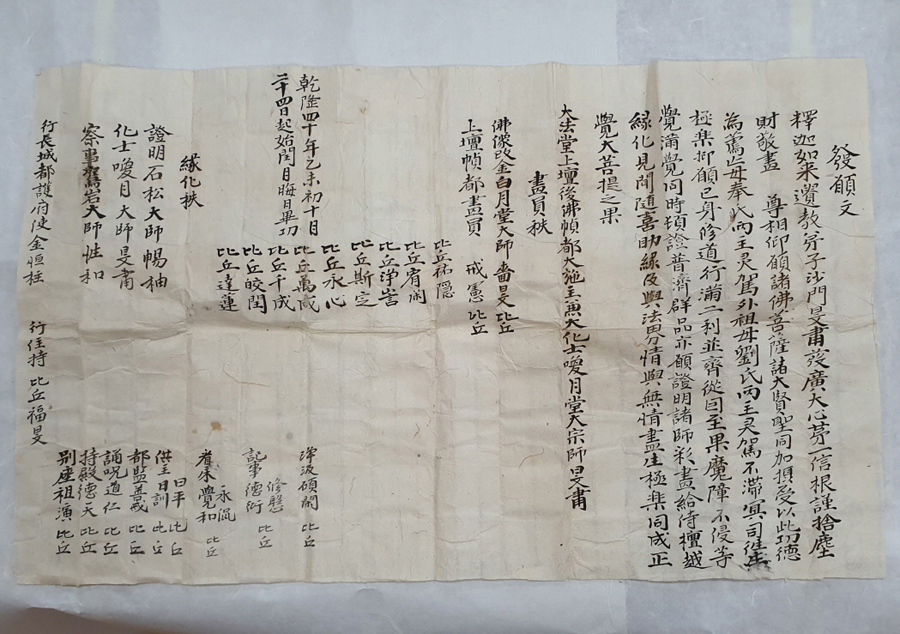 發願文
釋迦如來遺教弟子沙門旻肅發廣大心芴一信根謹捨塵
財敬畫 尊相仰願諸佛菩薩諸大賢聖同加損受以此功德
為鴌亡母奉氏兩主灵駕外祖母劉氏兩主灵駕不滯冥司徃生
極樂抑願己身修道行滿二利並齊從因至果魔障不侵等
覺滿覺同時頓證普濟群品亦願證明諸師彩畫給侍檀越
緣化見聞隨喜助緣及與法界情與無情盡生極樂同成正
覺大菩提之果
大法堂上壇後佛幀都大施主兼大化士嗳月堂大宗師旻肅
畫員秩
佛像改金白月堂大師 旻 比丘
上壇幀都畫員 戒憲 比丘
比丘祐隱
比丘宥閑
比丘淨
比丘斯定
比丘永心
比丘萬戒
比丘千成
比丘皎閏
比丘達蓮
乾隆四十年乙未初十月
二十四日起始閏月晦日畢功
緣化秩
證明石松大師暢柚
化士嗳月大師旻肅
察事鴌岩大師性和
行長城都護府使金恒柱
行住持 比丘福旻
淨汲碩閑 比丘
修慜
記事德衍 比丘
永侃
看來覺和 比丘
日平 比丘
供主日訓 比丘
都監善戒 比丘
誦呪道仁 比丘
持殿德天 比丘
別座祖演 比丘